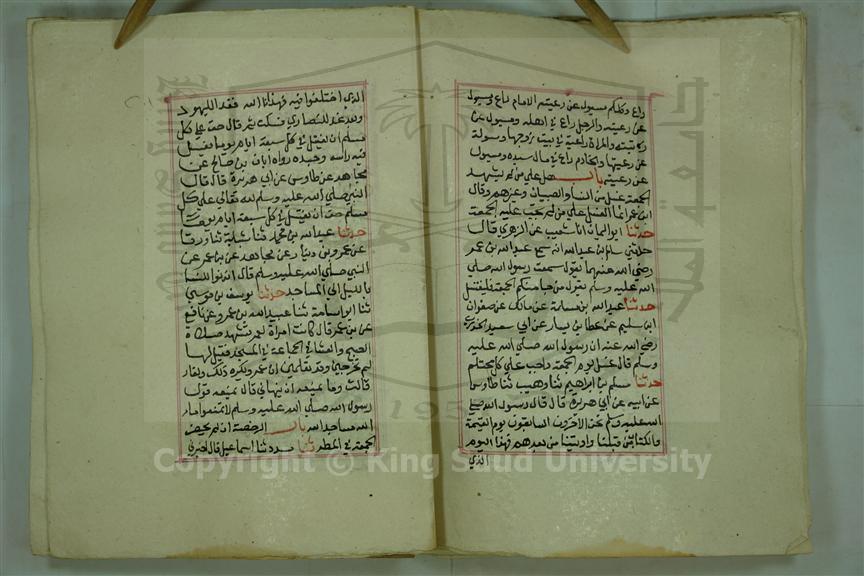 راع وكلكم مسول عن رعيته الامام راع ومسول
عن رعيته والرجل راع في اهله ومسول عن
رعيته والمراة راعية في بيت زوجها ومسولة
عن رعيتها والخادم راع في مال سيده ومسول
عن رعيته باب هل على من لم يشهد
الجمعة غسل من النسا والصبيان وغيرهم وقال
ابن عمر انما الغسل على من تجب عليه الجمعة
حدثنا ابو اليمان انا شعيب عن الزهري قال
حدثني سالم بن عبدالله انه سمع عبدالله بن عمر
رضي الله عنهما يقول سمعت رسول الله صلى
الله عليه وسلم يقول من جا منكم الجمعة فليغتسل
حدثنا عبدالله بن مسلمة عن مالك عن صفوان
ابن سليم عن عطا بن يسار عن ابي سعيد الخدري
رضي الله عنه ان رسول الله صلى الله عليه
وسلم قال غسل يوم الجمعة واجب على كل محتلم
حدثنا مسلم بن ابراهيم ثنا وهيب ثنا طاوس
عن ابيه عن ابي هريرة قال قال رسول الله صلى
الله عليه وسلم نحن الاخرون السابقون يوم القيمة
والكتاب من قبلنا واوتينا من بعدهم فهذا اليوم
الذي
الذي اختلفوا فيه فهدانا الله فغدا لليهود
وبعد غد للنصاري فسكت ثم قال حق على كل
مسلم ان يغتسل في كل سبعة ايام يوما يغسل
فيه راسه وجسده رواه ابان بن صالح عن
مجاهد عن طاوس عن ابي هريرة قال قال
النبي صلى الله عليه وسلم لله تعالى على كل
مسلم حق ان يغتسل في كل سبعة ايام يوما
حدثنا عبدالله بن محمد ثنا شبابة ثنا ورقا
عن عمرو بن دينار عن مجاهد عن بن عمر عن
النبي صلى الله عليه وسلم قال ائذنوا للنسا
بالليل الي المساجد حدثنا يوسف بن موسي
ثنا ابو اسامة ثنا عبيدالله بن عمر عن نافع
عن بن عمر قال كانت امراة لعمر تشهد صلاة
الصبح والعشا في الجماعة في المسجد فقيل لها
لم تخرجين وقد تعلمين ان عمر يكره ذلك ويغار
قالت وما يمنعه ان ينهاني قال يمنعه قول
رسول الله صلى الله عليه وسلم لا تمنعوا اما
الله مساجد الله باب الرخصة ان لم يحضر
الجمعة في المطر حدثنا مسدد ثنا اسماعيل قال اخبرني
Copyright © King Saud University
جامعة الملك سعود
1957